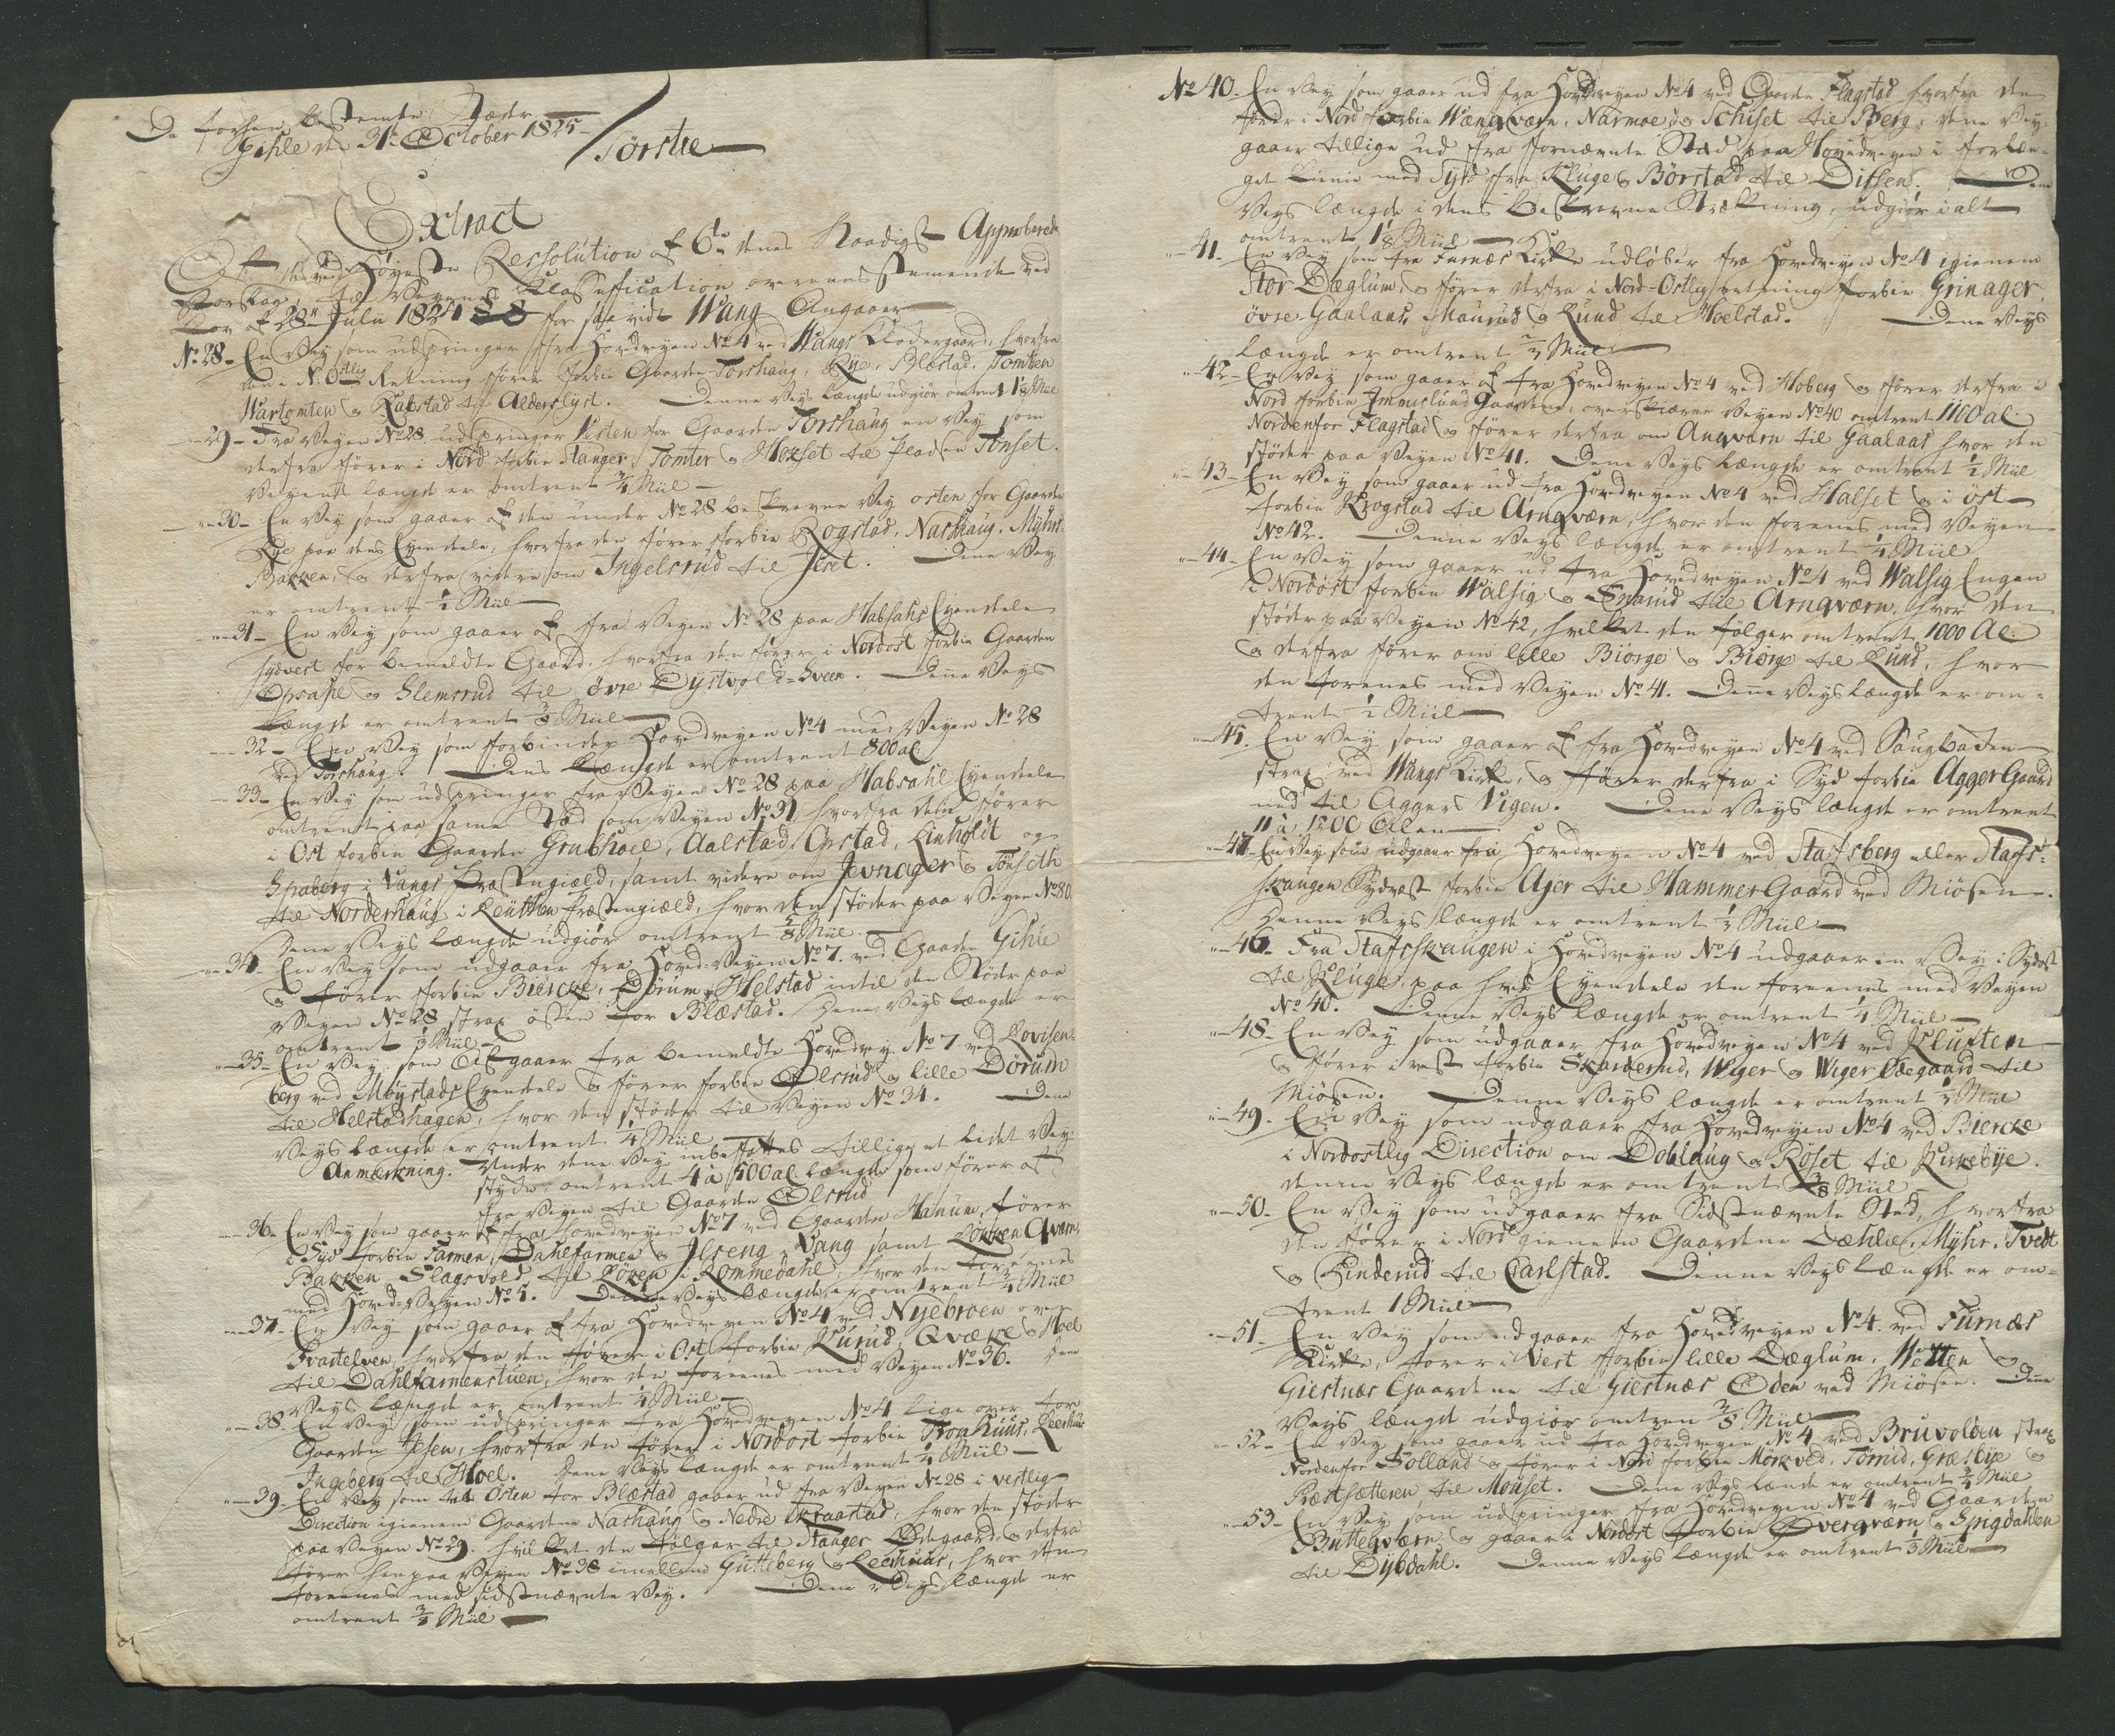 De forhen bestemte Stæder
Gihle den 31te October 1825
Sørstu
Extract
Af den ved Høieste Ressolution af 6te denes Naadigst Approberede
Forslag, til Veyenes Classefication overeensstemende ved
Lov af 28de Julii 1824 for saavidt Wang Angaaer
No 28- En Vey som udspringer fra Hovedveyen No 4 ved Wangs Klokergaard, hvorfra
den i N: Ostlig Retning fører forbie Gaarden Torshaug, Rye, Blæstad, Tomten
Wartomten og Kakstad til Alderslyst. Denne Veys længde udgiør omtrent 1 1/8 Miil
-29- Fra Veyen No 28 udspringer Vesten for Gaarden Torshaug en Vey som
derfra fører i Nord forbie Stanger, Tomter og Hoxset til Pladsen Tonset.
Veyens længde er omtrent 3/4 Miil
-30- En Vey som gaaer af den under No 28 beskrevne Vey osten for Gaarden
Rye paa dens Eyendeele, hvorfra den fører forbie Rogstad, Narshaug, Myhrs
Bakken, og derfra videre om Ingelsrud til Jeret. Dene Vey
er omtrent 1/2 Miil
-31- En Vey som gaaer af fra Veyen No 28 paa Habsahls Eyendeele
Sydvest for bemeldte Gaard, hvorfra den fører i Nordost forbie Gaarden
Opsahl og Slemsrud til øvre Dystvold-Sveen. Dene Veys
længde er omtrent 3/8 Miil
-32- En Vey som forbinder Hovedveyen No 4 med Veyen No 28
ved Torshaug. Dens Længde er omtrent 800 al
-33- En Vey som udspringer fra Veyen No 28 paa Habsahl Eyendeele
omtrent paa same Sted som Veyen No 31 hvorfra den fører
i Ost forbie Gaarden Grubhoel, Aalstad, Opstad, Linholdt og
Spaberg i Vangs Præstegield, samt videre om Jevnager og Tønseth
til Norderhaug i Leuthen Præstegield, hvor den støder paa Veyen No 80
Dene Veys længde udgiør omtrent 5/8 Miil
-34- En Vey som udgaaer fra Hoved-Veyen No 7. ved Gaarden Gihle
og fører forbie Biercke, Dørum og Helstad indtil den støder paa
Veyen No 28 strax østen for Blæstad. Dene Veys længde er
omtrent 1/3 Miil
-35- En Vey som udgaaer fra bemeldte Hovedvey No 7 ved Lovisen-
berg ved Møystads Eyendeele og fører forbie Olsrud og lille Dørum
til Helstadhagen, hvor den støder til Veyen No 34. Dene
Veys længde er omtrent 1/4 Miil
Anmærkning. Under dene Vey indbefattes tillige et lidet Vey-
stykke omtrent 4 à 500 al længde som fører af
fra Veyen til Gaarden Olsrud
-36- En Vey som gaaer af fra Hovedveyen No 7 ved Gaarden Hanum, fører
i Syd forbie Farmen, Dahlfarmen og Ilseng i Vang samt Løkken Qværns
Bakken Slagsvold, til Løken i Rommedahl, hvor den foreenes
med Hoved-Veyen No 5. Denne Veys længde er omtrent 3/4 Miil
-37- En Vey som gaaer af fra Hovedveyen No 4 ved Nyebroen over
Svartelven, hvorfra den fører i Ost forbie Rurud, Qvæke og Hoel
til Dahlfarmenstuen, hvor den foreenes med Veyen No 36. Den
Veys længde er omtrent 1/4 Miil
-38. En Vey som udspringer fra Hovedveyen No 4 lige over for
Gaarden Ilsen, hvorfra den fører i Nordost forbie Storhuus, Leerhuus
Ingeberg til Hoel. Dene Veys længde er omtrent 1/4 Miil
-39- En Vey som ved Østen for Blæstad gaaer ud fra Veyen No 28 i vestlig
Direction igienem Gaarden Narhaug og Nedre Skraastad, hvor den støder
paa Veyen No 29. hvilket den følger til Stanger Ødegaard, og derfra
fører hen paa Veyen No 38 imellem Gutteberg og Leerhuus, hvor den
foreenes med sidstnævnte Vey. Dene Veys længde er
omtrent 3/4 Miil
No 40- En Vey som gaaer ud fra Hovedveyen No 4 ved Gaarden Flagstad hvorfra den
fører i Nord forbie Wangværn, Narmoe og Schiset til Berg; dene Vey
gaaer tillige ud fra fornævnte Stæd paa Hovedveyen i forlæn-
get Linie mod Syd fra Kluge og Børstad til Ditsen. Dene
Veys længde i dens beskrevne Strækning, udgiør i alt
omtrent 1 1/8 Miil
-41. En Vey som fra Furnæs Kirke udløber fra Hovedveyen No 4 igienem
Stor Dæglum, og fører derfra i Nord-Ostlig retning forbie Grinager,
øvre Gaalaas, Maurud og Rund til Hoelstad. Dene Veys
Længde er omtrent 2/3 Miil
-42- En Vey som gaaer af fra Hovedveyen No 4 ved Hoberg og fører derfra i
Nord forbie Immerslund Gaardene, overskiærer Veyen No 40 omtrent 1100 al:
Nordenfor Flagstad og fører derfra om Anqværn til Gaalaas hvor den
støder paa Veyen No 41. Dene Veys længde er omtrent 1/2 Miil
-43- En Vey som gaaer ud fra Hovedveyen No 4 ved Halset og i øst
forbie Krogstad til Arnqværn, hvor den foreenes med Veyen
No 42. Denne Veys længde er omtrent 1/4 Miil
-44- En Vey som gaaer ud fra Hovedveyen No 4 ved Walsig Engen
i Nordost forbie Walsig og Snarud til Arnqværn, hvor den
støder paa Veyen No 42, hvilket den følger omtrent 1000 Al:
og derfra fører om lille Biørge og Biørge til Lund, hvor
den foreenes med Veyen No 41. Dene Veys længde er om-
trent 1/2 Miil
-45. En Vey som gaaer af fra Hovedveyen No 4 ved Saugbaden
strax ved Wangs Kirke, og fører derfra i Syd forbie Agger Gaard
ned til Aggers Vigen. Dene Veys længde er omtrent
11 à 1200 Alen
-47- En Vey som udgaaer fra Hovedveyen No 4 ved Stafsberg eller Stafs-
skaugen Sydvest forbie Ajer til Hammer Gaard ved Miøsen.
Denne Veys længde er omtrent 1/4 Miil
-46. Fra Stafsskaugen i Hovedveyen No 4 udgaaer en Vey i Sydost
til Kluge, paa hvis Eyendeele den foreenes med Veyen
No 40. Denne Veys længde er omtrent 1/4 Miil
-48- En Vey som udgaaer fra Hovedveyen No 4 ved Kluften
og fører i vest forbie Skarderud, Wiger og Wiger Ødegaard til
Miøsen. Denne Veys længde er omtrent 1/4 Miil
-49. En Vey som udgaaer fra Hovedveyen No 4 ved Biercke
i Nordostlig Direction om Doblaug og Røset til Kirkebye.
denne Veys længde er omtrent 3/8 Miil
-50. En Vey som udgaaer fra Sidstnævnte Stæd, hvorfra
den fører i Nord igienem Gaardene Dæhlie, Myhr, Tvedt
og Hinderud til Carlstad. Denne Veys længde er om-
trent 1 Miil
-51. En Vey som udgaaer fra Hovedveyen No 4. ved Furnæs
Kirke, fører i Vest forbie lille Dæglum, Wetten og
Giestnæs Gaardene til Giestnæs Odden ved Miøsen. Dene
Veys længde udgiør omtren 3/8 Miil
-52- En Vey som gaaer ud fra Hovedveyen No 4 ved Bruvolden strax
Nordenfor Folland og fører i Nord forbie Mørkved, Tomid, Græsbye og
Præstsætteren til Monset. Dene Veys længde er omtrent 3/4 Miil
-53- En Vey som udspringer fra Hovedveyen No 4 ved Gaarden
Butteqværn og gaaer i Nordost forbie Overqværn og Spigdahlen
til Dybdahl. Denne Veys længde er omtrent 1/3 Miil